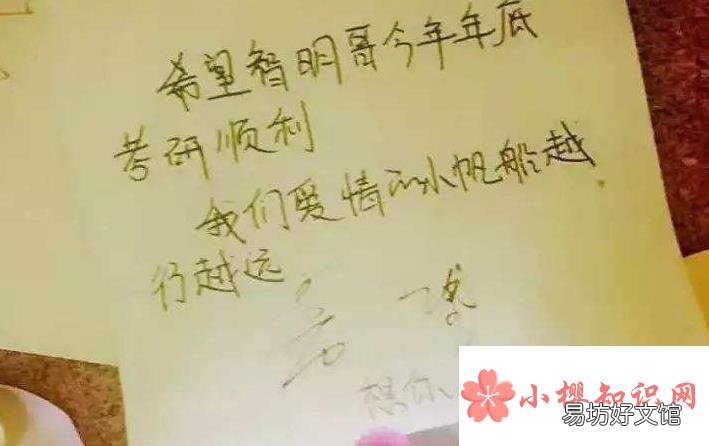 希望智明哥今年年底
考研顺利
我们爱情的小帆船越
行越远.
想你
小樱知识网
易坊好文馆